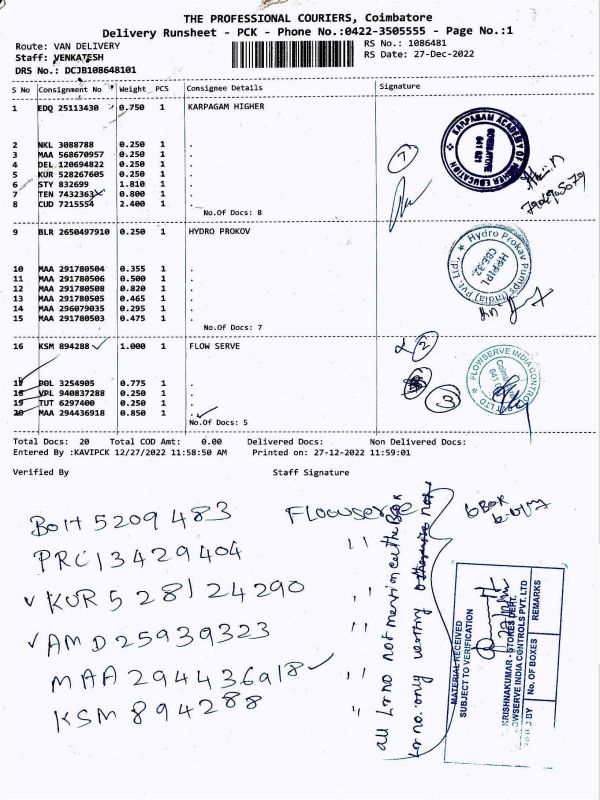 THE PROFESSIONAL COURIERS, Coimbatore
Delivery Runsheet - PCK - Phone No.:0422-3505555 - Page No.:1
Route: VAN DELIVERY
RS No.: 1086481
Staff: VENKATESH
RS Date: 27-Dec-2022
DRS No.: DCJB108648101
S No Consignment No Weight PCS Consignee Details Signature
1 EDQ 25113430 0.750 1 KARPAGAM HIGHER
2 NKL 3088788 0.250 1 .
3 MAA 568670957 0.250 1 .
4 DEL 120694822 0.250 1 .
5 KUR 528267605 0.250 1 .
6 STY 832699 1.810 1 .
7 TEN 7432363 0.800 1 .
8 CUD 7215554 2.400 1 .
No.Of Docs: 8
KARPAGAM ACADEMY OF HIGHER EDUCATION
COIMBATORE
641 021
7
9 BLR 2650497910 0.250 1 HYDRO PROKOV
10 MAA 291780504 0.355 1 .
11 MAA 291780506 0.500 1 .
12 MAA 291780508 0.820 1 .
13 MAA 291780505 0.465 1 .
14 MAA 296079035 0.295 1 .
15 MAA 291780503 0.475 1 .
No.Of Docs: 7
Hydro Prokav Pumps (India) Pvt. Ltd.,
HPPIPL
CBE-32
16 KSM 894288 1.000 1 FLOW SERVE
17 POL 3254905 0.775 1 .
18 VPL 940837288 0.250 1 .
19 TUT 6297400 0.250 1 .
20 MAA 294436918 0.850 1 .
No.Of Docs: 5
2
3
FLOWSERVE INDIA CONTROLS
Total Docs: 20 Total COD Amt: 0.00 Delivered Docs: Non Delivered Docs:
Entered By :KAVIPCK 12/27/2022 11:58:50 AM Printed on: 27-12-2022 11:59:01
Verified By Staff Signature
BOM 5209483 Flowserve
PRC 13429404 ''
KUR 528124290 ''
AMD 25939323 ''
MAA 294436918 ''
KSM 894288 ''
all Lr no not mention all the Box
Lr no. only
6 BOX
MATERIAL RECEIVED
SUBJECT TO VERIFICATION
KRISHNAKUMAR - STORES DEPT.
FLOWSERVE INDIA CONTROLS PVT. LTD
No. OF BOXES
REMARKS